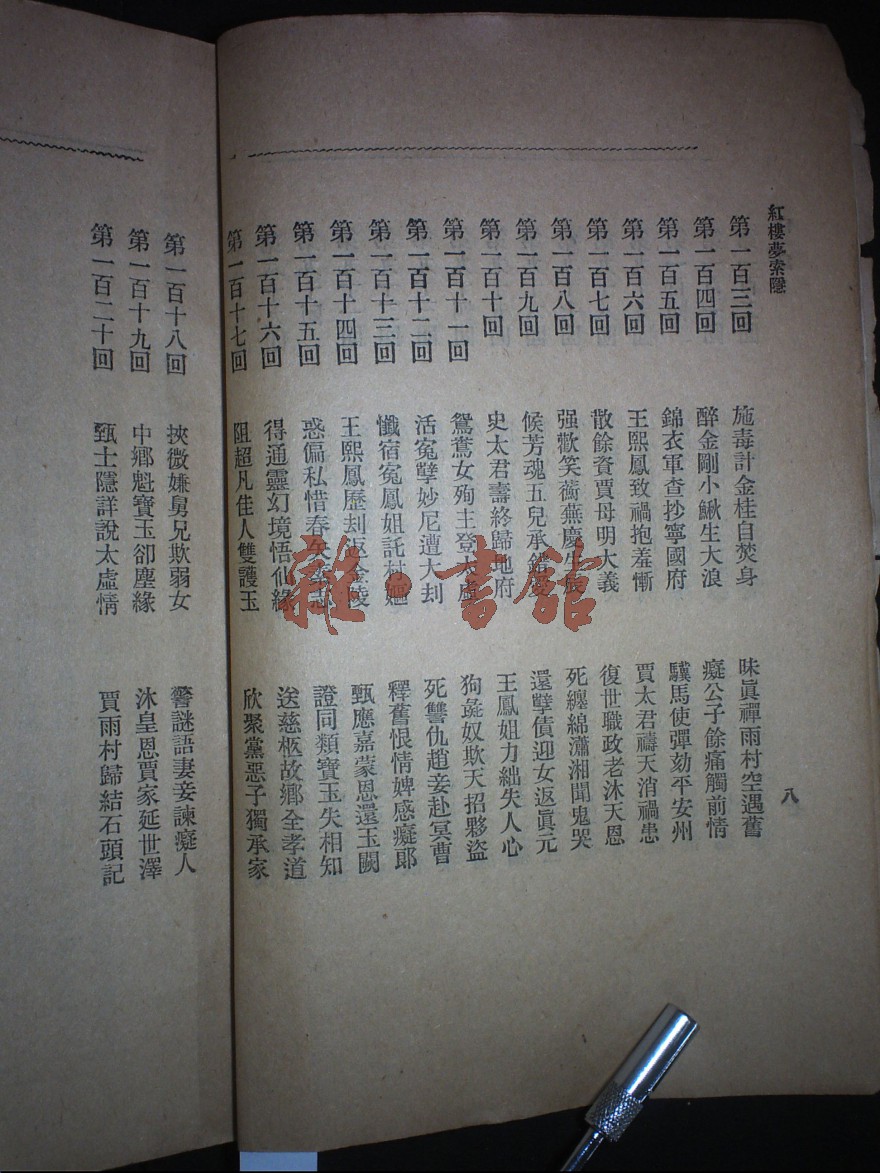 紅樓夢索隱
八
第一百三回 施毒計金桂自焚身 昧眞禪雨村空遇舊
第一百四回 醉金剛小鰍生大浪 癡公子餘痛觸前情
第一百五回 錦衣軍查抄寧國府 驥馬使彈劾平安州
第一百六回 王熙鳳致禍抱羞慚 賈太君禱天消禍患
第一百七回 散餘資賈母明大義 復世職政老沐天恩
第一百八回 强歡笑蘅蕪慶生辰 死纏綿瀟湘聞鬼哭
第一百九回 候芳魂五兒承錯愛 還孽債迎女返眞元
第一百十回 史太君壽終歸地府 王鳳姐力絀失人心
第一百十一回 鴛鴦女殉主登太虛 狗彘奴欺天招夥盜
第一百十二回 活冤孽妙尼遭大刦 死讐仇趙妾赴冥曹
第一百十三回 懺宿冤鳳姐託村嫗 釋舊恨情婢感癡郞
第一百十四回 王熙鳳歷刦返金陵 甄應嘉蒙恩還玉闕
第一百十五回 惑偏私惜春矢素志 證同類寶玉失相知
第一百十六回 得通靈幻境悟仙緣 送慈柩故鄉全孝道
第一百十七回 阻超凡佳人雙護玉 欣聚黨惡子獨承家
第一百十八回 挾微嫌舅兄欺弱女 警謎語妻妾諫癡人
第一百十九回 中鄉魁寶玉卻塵緣 沐皇恩賈家延世澤
第一百二十回 甄士隱詳說太虛情 賈雨村歸結石頭記
雜·書館